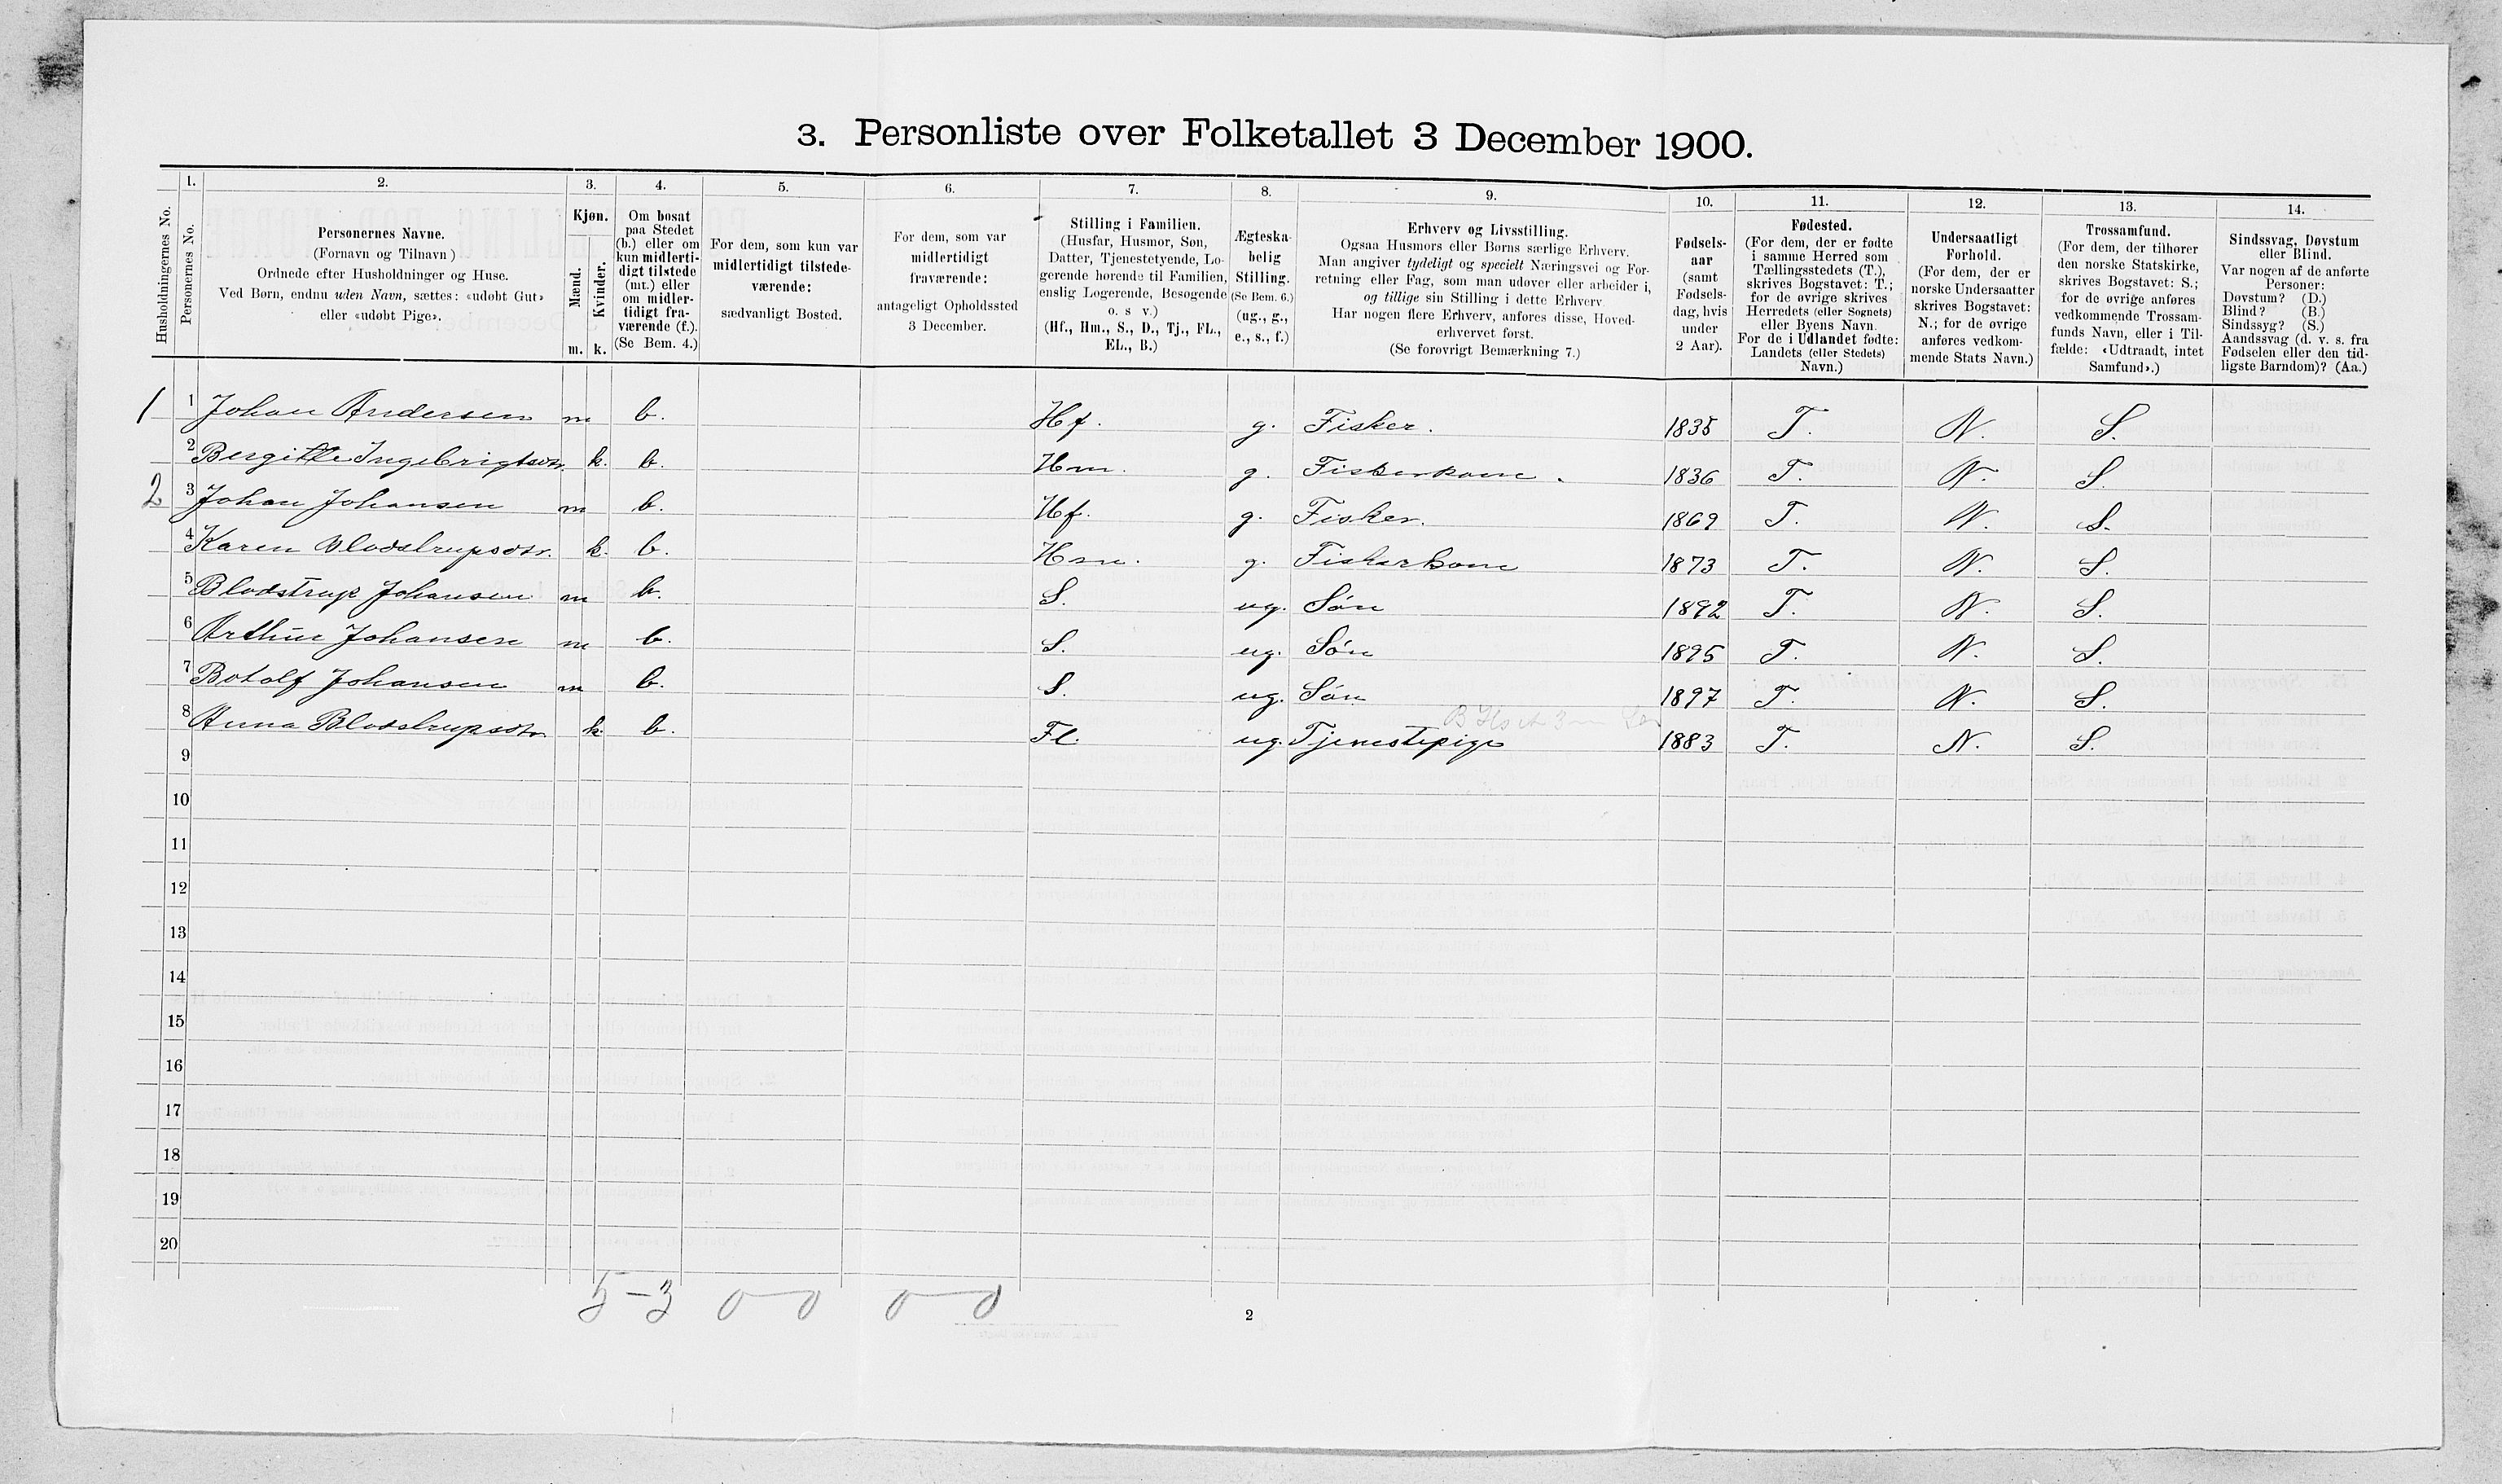 3. Personliste over Folketallet 3 December 1900.
Husholdningernes No.
1.
Personernes No.
2.
Personernes Navne.
(Fornavn og Tilnavn)
Ordnede efter Husholdninger og Huse.
Ved Børn, endnu uden Navn, sættes: «udøbt Gut»
eller «udøbt Pige».
3.
Kjøn.
Mænd.
Kvinder.
m. k.
4.
Om bosat
paa Stedet
(b.) eller om
kun midlerti-
digt tilstede
(mt.) eller
om midler-
tidigt fra-
værende (f.).
(Se Bem. 4.)
5.
For dem, som kun var
midlertidigt tilstede-
værende:
sædvanligt Bosted.
6.
For dem, som var
midlertidigt
fraværende:
antageligt Opholdssted
3 December.
7.
Stilling i Familien.
(Husfar, Husmor, Søn,
Datter, Tjenestetyende, Lo-
gerende hørende til Familien,
enslig Logerende, Besøgende
o. s v.)
(Hf., Hm., S., D., Tj., FL.,
EL., B.)
8.
Ægteska-
belig
Stilling.
(Se Bem. 6.)
(ug., g.,
e., s., f.)
9.
Erhverv og Livsstilling.
Ogsaa Husmors eller Børns særlige Erhverv.
Man angiver tydeligt og specielt Næringsvei og For-
retning eller Fag, som man udøver eller arbeider i,
og tillige sin Stilling i dette Erhverv.
Har nogen flere Erhverv, anføres disse, Hoved-
erhvervet først.
(Se forøvrigt Bemærkning 7.)
10.
Fødsels-
aar
(samt
Fødsels-
dag, hvis
under
2 Aar).
11.
Fødested.
(For dem, der er fødte
i samme Herred som
Tællingsstedets (T.),
skrives Bogstavet: T.;
for de øvrige skrives
Herredets (eller Sognets)
eller Byens Navn.
For de i Udlandet fødte:
Landets (eller Stedets)
Navn.)
12.
Undersaatligt
Forhold.
(For dem, der er
norske Undersaatter
skrives Bogstavet:
N.; for de øvrige
anføres vedkom-
mende Stats Navn.)
13.
Trossamfund.
(For dem, der tilhører
den norske Statskirke,
skrives Bogstavet: S.;
for de øvrige anføres
vedkommende Trossam-
funds Navn, eller i Til-
fælde: «Udtraadt, intet
Samfund».)
14.
Sindssvag, Døvstum
eller Blind.
Var nogen af de anførte
Personer:
Døvstum? (D.)
Blind? (B.)
Sindssyg? (S.)
Aandssvag (d. v. s. fra
Fødselen eller den tid-
ligste Barndom)? (Aa.)
1 1 Johan Andersen m b. Hf. g. Fisker. 1835 T. N. S.
2 Bergitte Ingebrigtsdtr. k. b. Hm. g. Fiskerkone. 1836 T. N. S.
2 3 Johan Johansen m b. Hf. g. Fisker. 1869 T. N. S.
4 Karen Blodstrupsdtr. k. b. Hm. g. Fiskerkone 1873 T. N. S.
5 Blodstrup Johansen m b. S. ug. Søn 1892 T. N. S.
6 Arthur Johansen m b. S. ug. Søn 1895 T. N. S.
7 Botolf Johansen m b. S. ug. Søn 1897 T. N. S.
8 Anna Blodstrupsdtr. k. b. Fl. ug. Tjenestepige 1883 T. N. S.
9
10
11
12
13
14
15
16
17
18
19
20
5 - 3 0 - 0 0 - 0
2